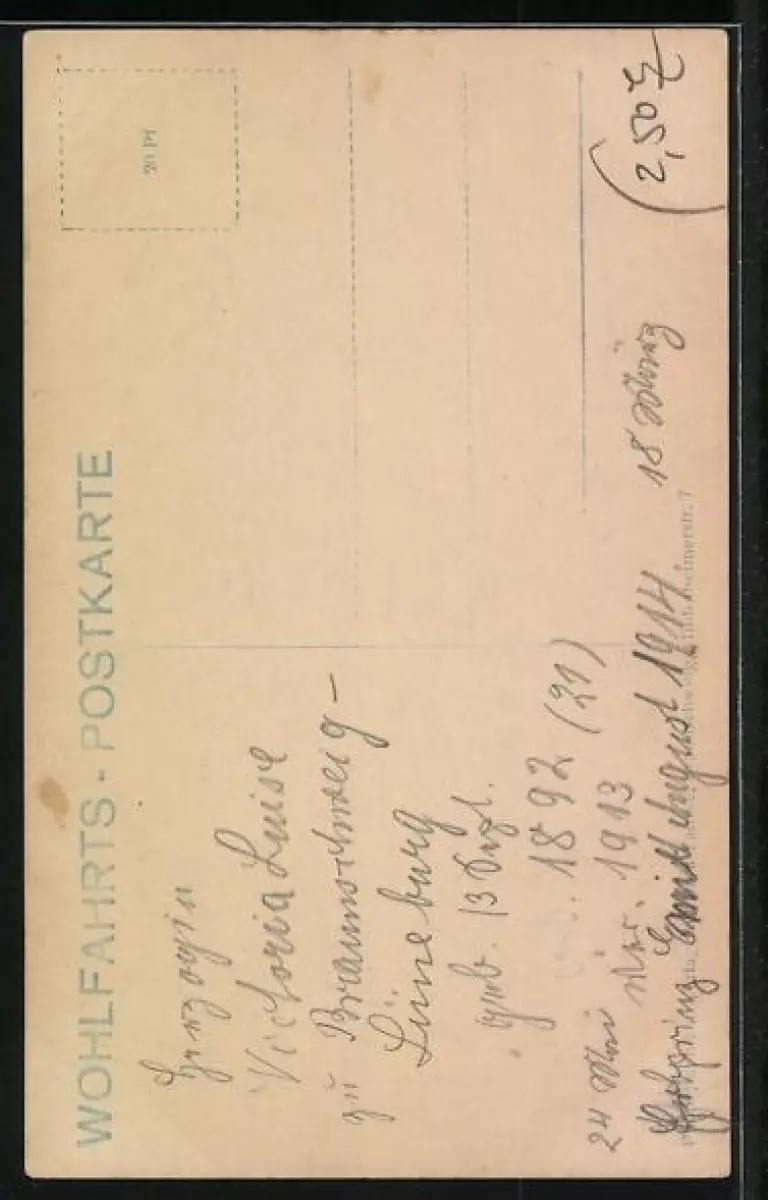 WOHLFAHRTS - POSTKARTE
20 Pf
Herzogin
Victoria Luise
zu Braunschweig-
Lüneburg
geb. 13 Sept.
1892 (21)
24 Mai 1913
Erbprinz Ernst August 1914 18 März
(2,50